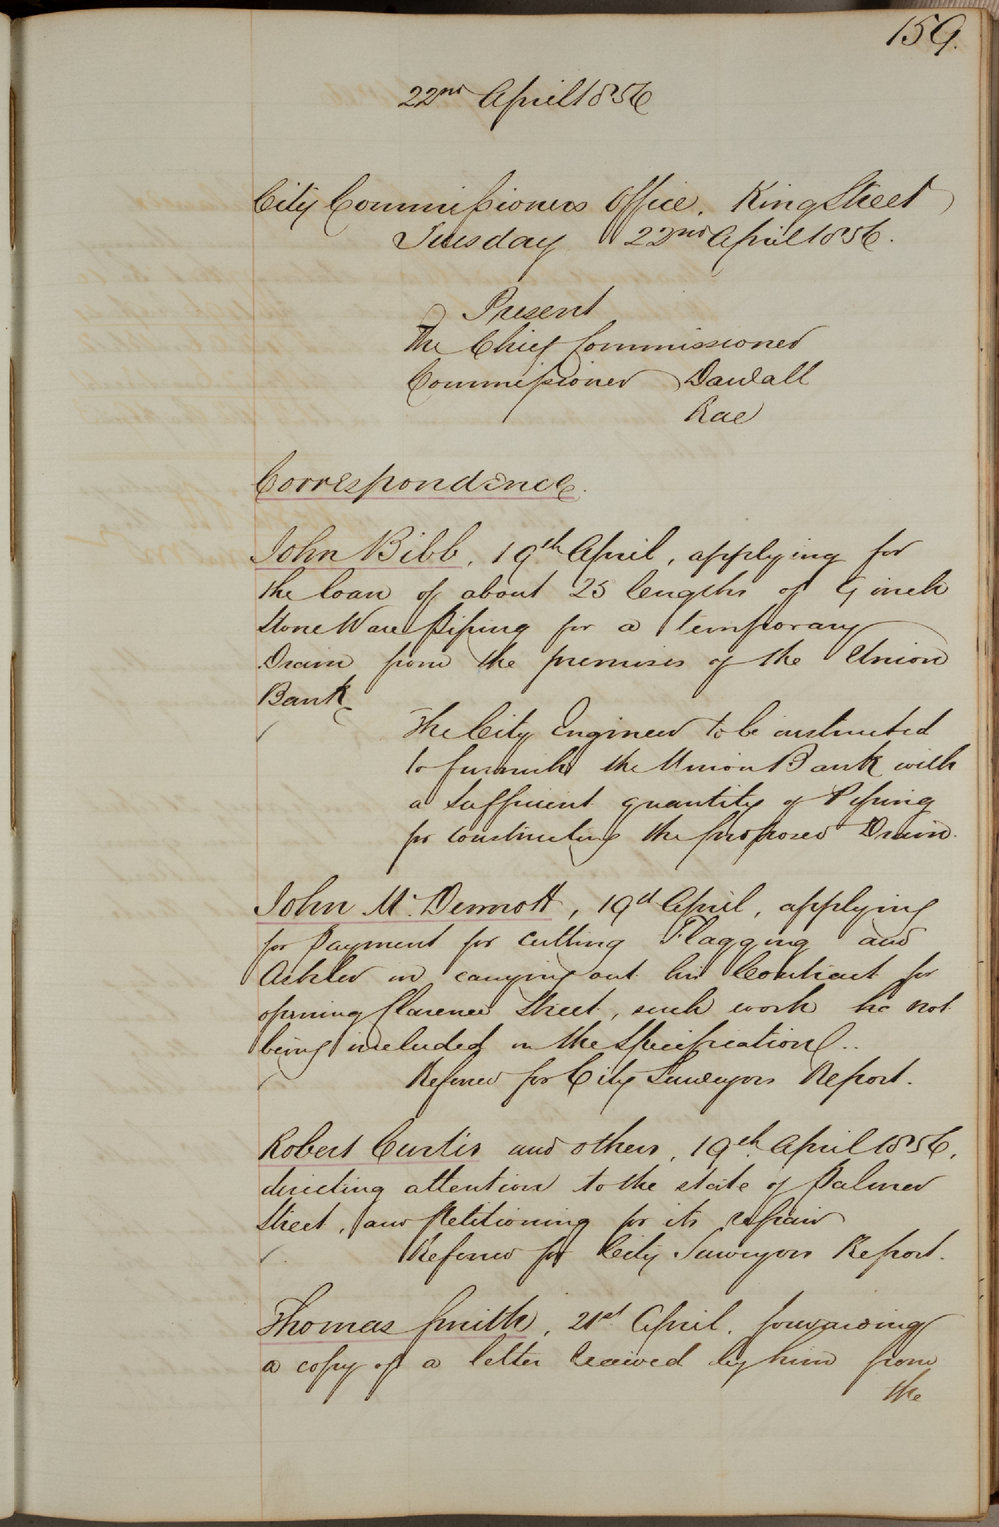 159.
22nd April 1856
City Commissioners Office. King Street
Tuesday 22nd April 1856.
Present
The Chief Commissioner
Commissioner Darvall
Rae
Correspondence.
John Bibb, 19th April, applying for
the loan of about 25 lengths of 9 inch
Stone Ware Piping for a temporary
Drain from the premises of the Union
Bank
The City Engineer to be instructed
to furnish the Union Bank with
a sufficient quantity of Piping
for constructing the proposed Drain.
John McDermott, 19th April, applying
for Payment for cutting Flagging and
Ashler in carrying out his Contract for
opening Clarence Street, such work &c not
being included in the Specification..
Referred for City Surveyors Report.
Robert Curtis and others, 19th April 1856,
directing attention to the state of Palmer
Street, and Petitioning for its repair
Referred for City Surveyors Report.
Thomas Smith, 21st April, forwarding
a copy of a letter received by him from
the